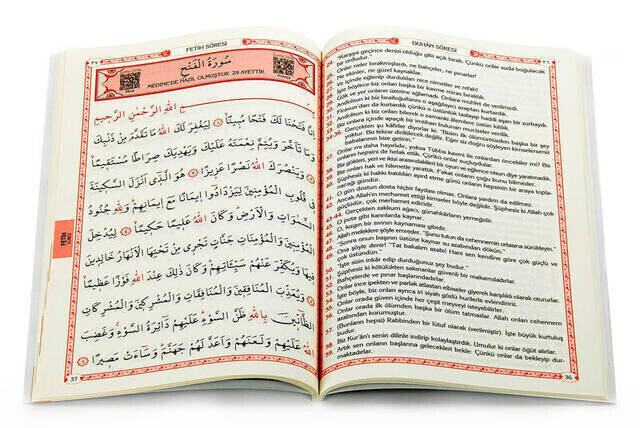 FETİH SÛRESİ
٣٧
سُورَةُ الْفَتْحِ
MEDİNE'DE NAZİL OLMUŞTUR. 29 AYETTİR.
بِسْمِ اللّٰهِ الرَّحْمٰنِ الرَّحِيمِ
اِنَّا فَتَحْنَا لَكَ فَتْحًا مُبِينًا ﴿١﴾ لِيَغْفِرَ لَكَ اللّٰهُ مَا تَقَدَّمَ مِنْ ذَنْبِكَ
وَمَا تَاَخَّرَ وَيُتِمَّ نِعْمَتَهُ عَلَيْكَ وَيَهْدِيَكَ صِرَاطًا مُسْتَقِيمًا ﴿٢﴾
وَيَنْصُرَكَ اللّٰهُ نَصْرًا عَزِيزًا ﴿٣﴾ هُوَ الَّذِى اَنْزَلَ السَّكِينَةَ
فِى قُلُوبِ الْمُؤْمِنِينَ لِيَزْدَادُوا اِيمَانًا مَعَ اِيمَانِهِمْ وَلِلّٰهِ جُنُودُ
السَّمٰوَاتِ وَالْاَرْضِ وَكَانَ اللّٰهُ عَلِيمًا حَكِيمًا ﴿٤﴾ لِيُدْخِلَ
الْمُؤْمِنِينَ وَالْمُؤْمِنَاتِ جَنَّاتٍ تَجْرِى مِنْ تَحْتِهَا الْاَنْهَارُ خَالِدِينَ
فِيهَا وَيُكَفِّرَ عَنْهُمْ سَيِّئَاتِهِمْ وَكَانَ ذٰلِكَ عِنْدَ اللّٰهِ فَوْزًا عَظِيمًا ﴿٥﴾
وَيُعَذِّبَ الْمُنَافِقِينَ وَالْمُنَافِقَاتِ وَالْمُشْرِكِينَ وَالْمُشْرِكَاتِ
الظَّانِّينَ بِاللّٰهِ ظَنَّ السَّوْءِ عَلَيْهِمْ دَائِرَةُ السَّوْءِ وَغَضِبَ
اللّٰهُ عَلَيْهِمْ وَلَعَنَهُمْ وَاَعَدَّ لَهُمْ جَهَنَّمَ وَسَاءَتْ مَصِيرًا ﴿٦﴾
FETİH
37
DUHÂN SÛRESİ
٣٦
"Karaya geçince denizi olduğu gibi açık bırak. Çünkü onlar suda boğulacak
bir ordudur."
Onlar neler bırakmışlardı, ne bahçeler, ne pınarlar!
Ne ekinler, ne güzel kaynaklar.
Ve içinde eğlenip durdukları nice nimetler ve refah!
İşte böylece biz onları başka bir kavme miras bıraktık.
Gök ve yer onların üzerine ağlamadı. Onlara mühlet de verilmedi.
Andolsun ki biz İsrailoğullarını o aşağılayıcı azaptan kurtardık.
Firavun'dan da kurtardık çünkü o üstünlük taslayıp haddi aşan bir zorbaydı.
Andolsun ki biz onları bilerek o zamanki âlemlere üstün kıldık.
Biz onlara içinde apaçık bir imtihan bulunan mucizeler verdik.
Gerçekten şu kâfirler diyorlar ki: "Bizim ilk ölümümüzden başka bir şey
yoktur. Biz tekrar diriltilecek değiliz. Eğer siz doğru söyleyen kimselerseniz
babalarımızı bize getirin."
37. Onlar mı daha hayırlıdır, yoksa Tübba kavmi ile onlardan öncekiler mi? Biz
onların hepsini de helak ettik. Çünkü onlar suçluydular.
Biz gökleri, yeri ve ikisi arasındakileri bir oyun ve eğlence olsun diye yaratmadık.
Biz onları hak ve hikmetle yarattık. Fakat onların çoğu bunu bilmezler.
Şüphesiz ki hakkı batıldan ayırd etme günü onların hepsinin bir araya topla-
nacağı gündür.
O gün dostun dosta hiçbir faydası olmaz. Onlara yardım da edilmez.
Ancak Allah'ın merhamet ettiği kimseler böyle değildir. Şüphesiz ki Allah çok
güçlüdür, çok merhamet edicidir.
43-44. Gerçekten zakkum ağacı, günahkârların yemeğidir.
O pota gibi karınlarda kaynar.
O, kızgın bir sıvının kaynaması gibidir.
47. Allah meleklere şöyle emreder. "Şunu tutun da cehennemin ortasına sürükleyin."
48. "Sonra onun başının üstüne kaynar su azabından dökün."
49. Ona şöyle denir! "Tat bakalım azabı! Hani sen kendine göre çok güçlü ve
çok üstündün."
50. "İşte sizin inkâr edip durduğunuz şey budur."
51. Şüphesiz ki kötülükten sakınanlar güvenli bir makamdadırlar.
52. Bahçelerde ve pınar başlarındadırlar.
53. Onlar ince ipekten ve parlak atlastan elbiseler giyerek karşılıklı olarak otururlar.
54. İşte böyle, biz onları ayrıca iri siyah gözlü hurilerle evlendiririz.
55. Onlar orada güven içinde her çeşit meyveyi isteyebilirler.
56. Onlar orada ilk ölümden başka bir ölüm tatmazlar. Allah onları cehennem
azabından korumuştur.
57. (Bunların hepsi) Rabbinden bir lütuf olarak (verilmiştir). İşte büyük kurtuluş
budur.
58. Biz Kur'an'ı senin dilinle indirip kolaylaştırdık. Umulur ki onlar öğüt alırlar.
59. Artık sen onların başlarına gelecekleri bekle: Çünkü onlar da bekleyip dur-
maktadırlar.
36